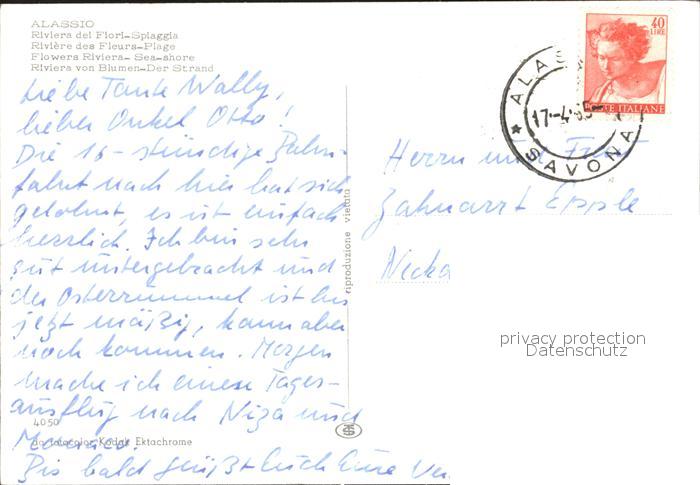 ALASSIO
Riviera dei Fiori-Spiaggia
Rivière des Fleurs-Plage
Flowers Riviera- Sea-shore
Riviera von Blumen-Der Strand
Liebe Tante Wally,
lieber Onkel Otto!
Die 16-stündige Bahn-
fahrt nach hier hat sich
gelohnt, es ist einfach
herrlich. Ich bin sehr
gut untergebracht und
der Osterrummel ist bis
jetzt mäßig, kann aber
noch kommen. Morgen
mache ich einen Tages-
ausflug nach Nizza und
Monaco.
Bis bald grüßt Euch Eure
4050
da fotocolor Kodak Ektachrome
riproduzione vietata
40
LIRE
POSTE ITALIANE
ALASSIO
17-4-65
* SAVONA
Herrn und Frau
Zahnarzt Epple
Necka
privacy protection
Datenschutz